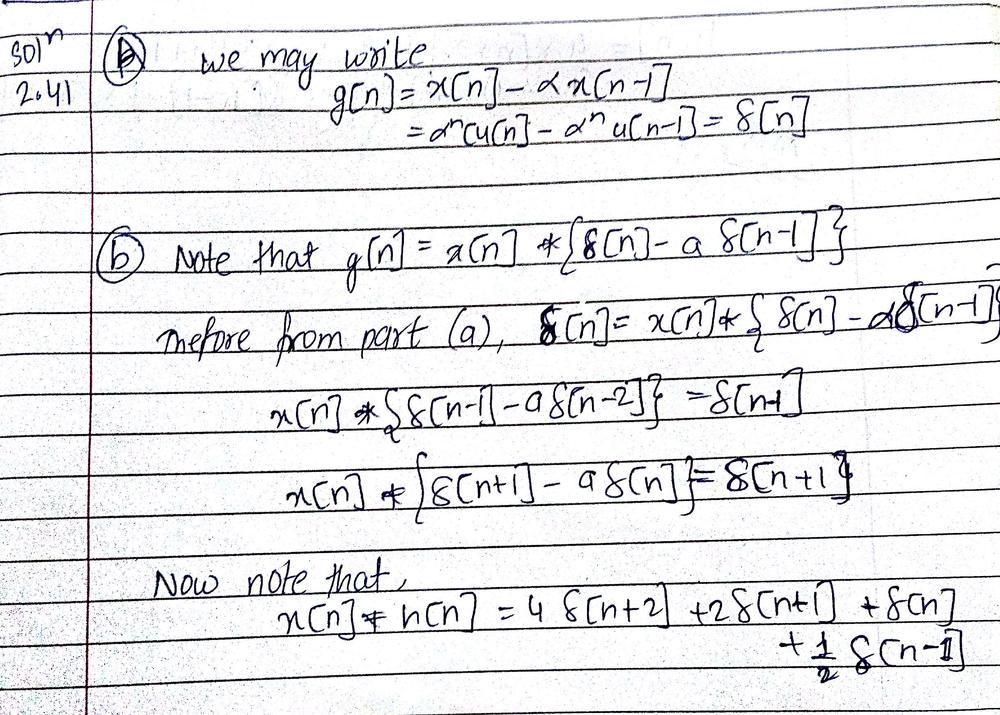 Solⁿ 2.41 (a) we may write
g[n] = x[n] - αx[n-1]
= αⁿ(u[n] - αⁿ u[n-1] = δ[n]
(b) Note that g[n] = x[n] * {δ[n] - a δ[n-1]}
Thefore from part (a), δ[n] = x[n] * {δ[n] - αδ[n-1]}
x[n] * {δ[n-1] - aδ[n-2]} = δ[n-1]
x[n] * {δ[n+1] - aδ[n]} = δ[n+1]
Now note that,
x[n] * h[n] = 4 δ[n+2] + 2δ[n+1] + δ[n]
+ 1/2 δ[n-1]